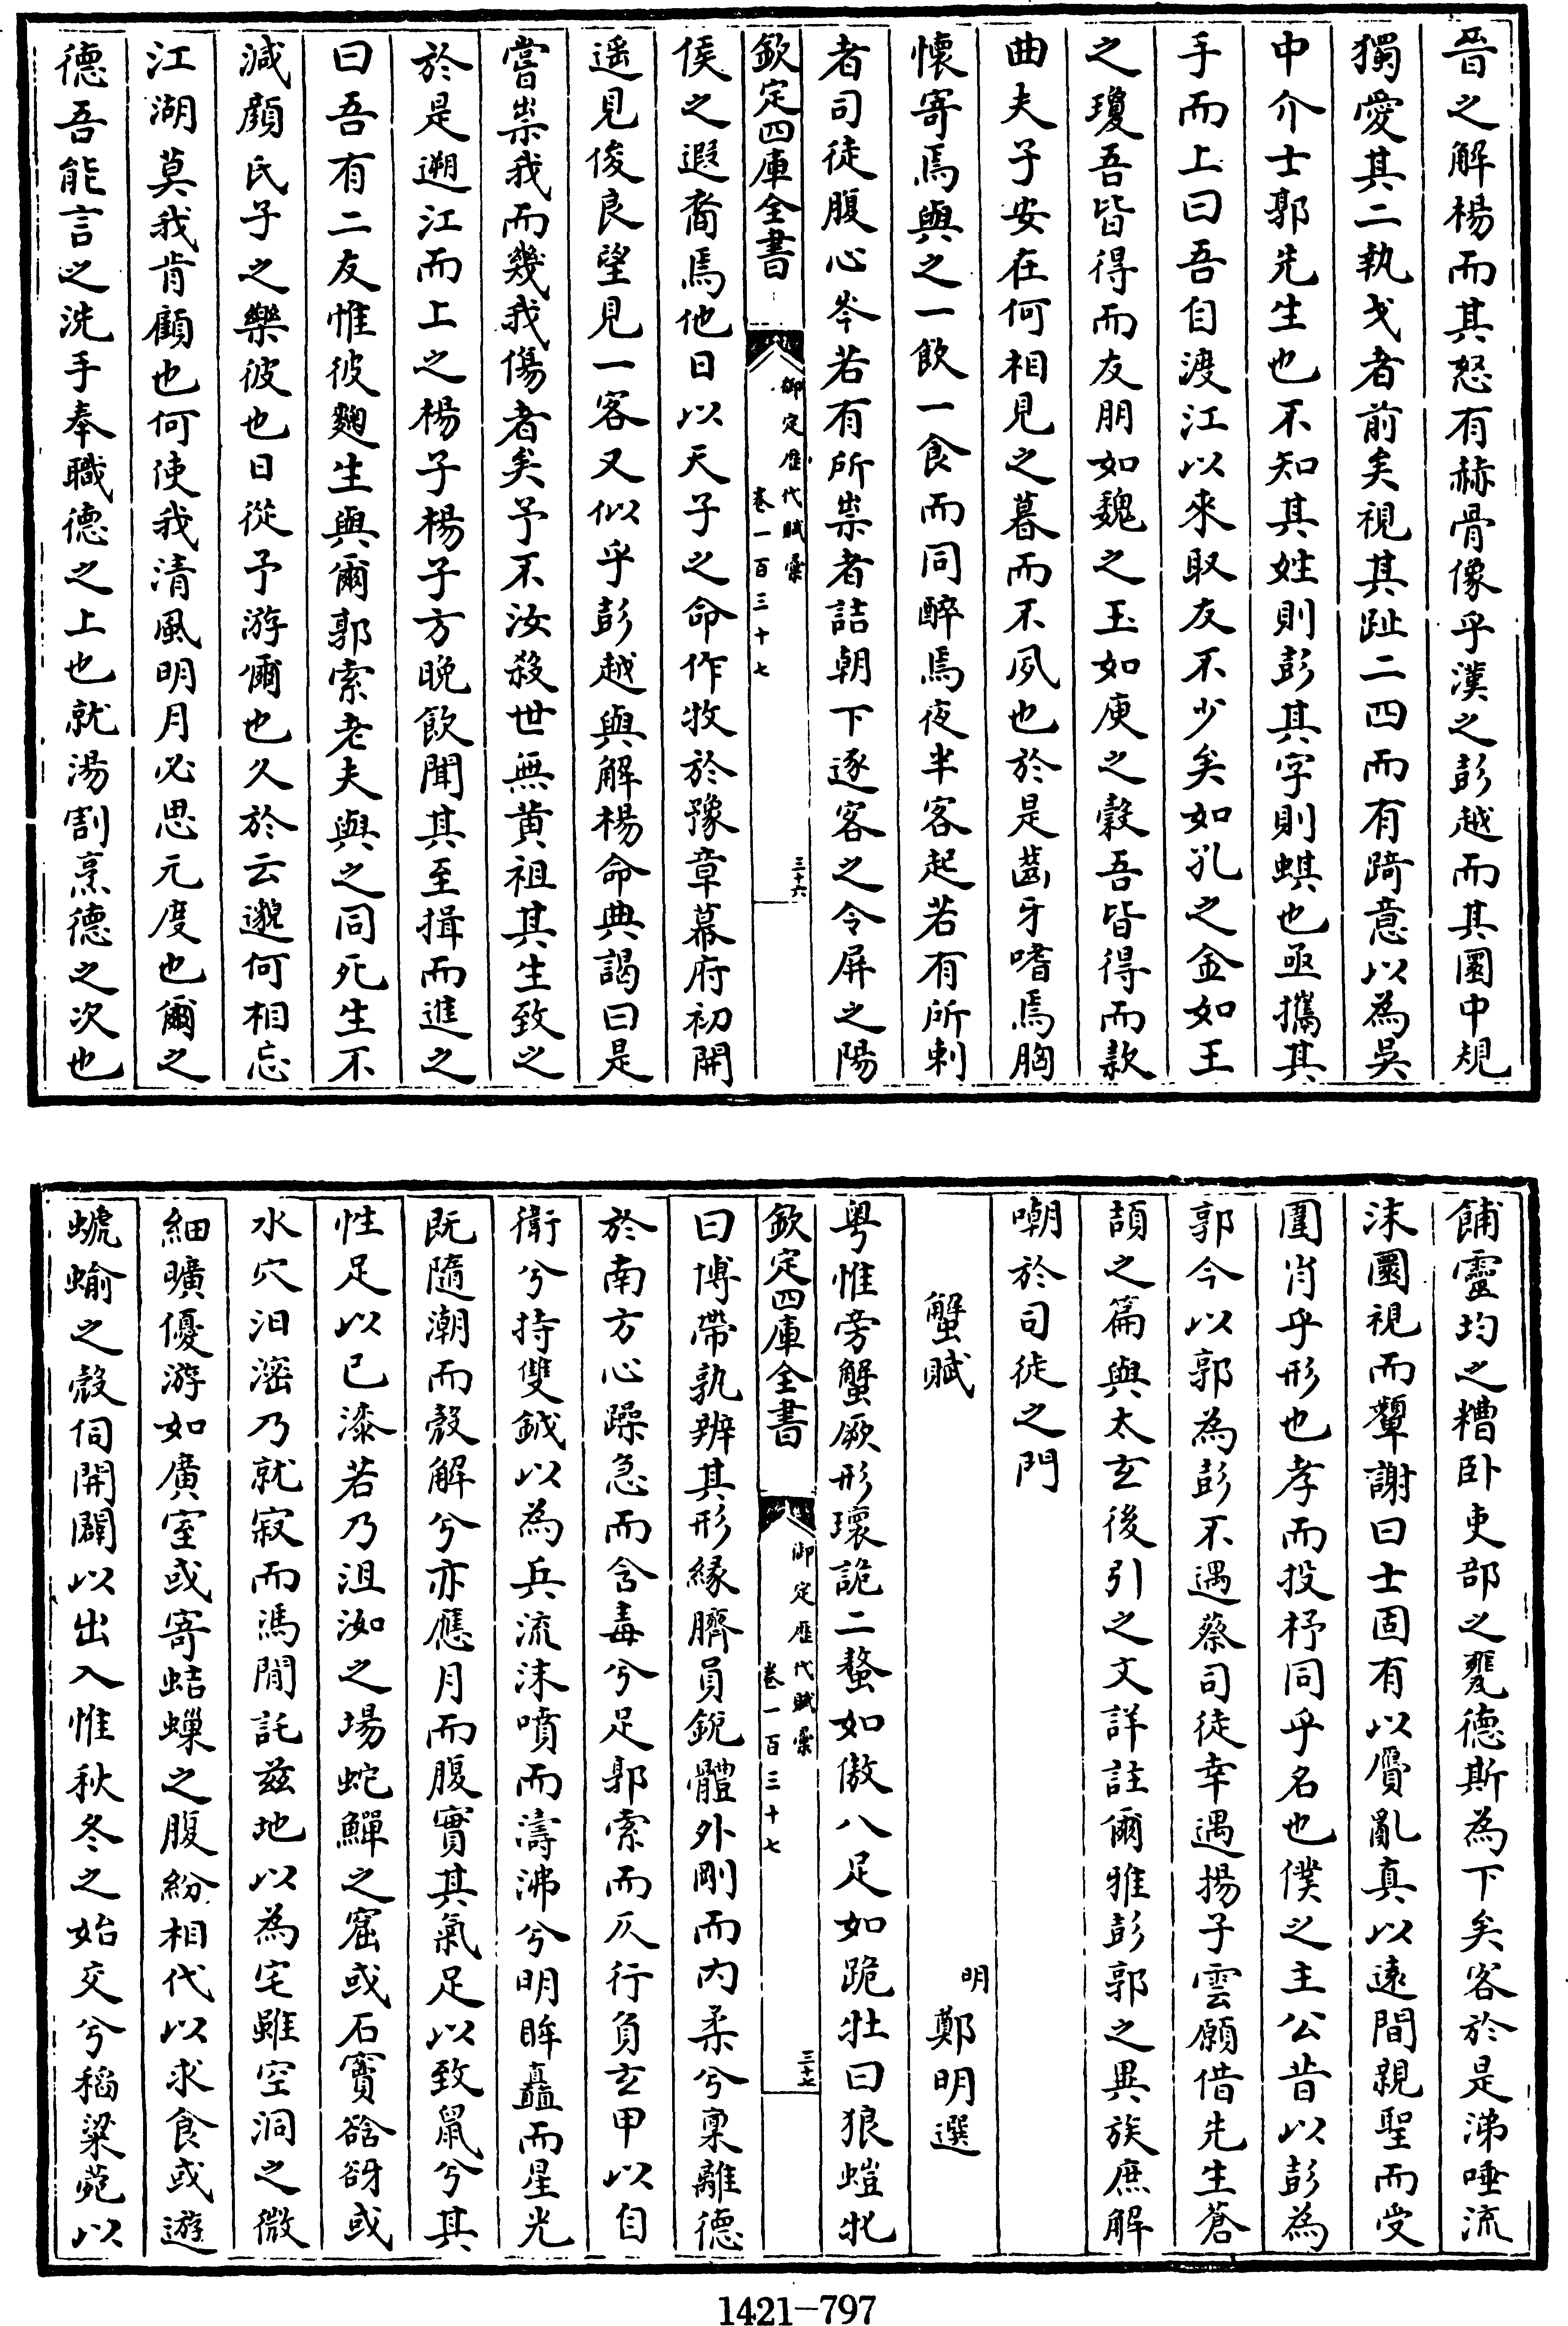 晉之解楊而其怒有赫骨像乎漢之彭越而其圜中規
獨愛其二執戈者前矣視其趾二四而有踦意以為吳
中介士郭先生也不知其姓則彭其字則蜞也亟攜其
手而上曰吾自渡江以來取友不少矣如孔之金如王
之瓊吾皆得而友朋如魏之玉如庾之穀吾皆得而款
曲夫子安在何相見之暮而不夙也於是齒牙嗜焉胸
懷寄焉與之一飲一食而同醉焉夜半客起若有所刺
者司徒腹心岑若有所祟者詰朝下逐客之令屏之陽
欽定四庫全書
御定歷代賦彙
卷一百三十七
三十六
侯之遐裔焉他日以天子之命作牧於豫章幕府初開
遥見俊良望見一客又似乎彭越與解楊命典謁曰是
嘗祟我而幾我傷者矣予不汝殺世無黄祖其生致之
於是遡江而上之楊子楊子方晚飲聞其至揖而進之
曰吾有二友惟彼麴生與爾郭索老夫與之同死生不
減顔氏子之樂彼也日從予游爾也久於云邈何相忘
江湖莫我肯顧也何使我清風明月必思元度也爾之
德吾能言之洗手奉職德之上也就湯割烹德之次也
餔靈均之糟卧吏部之甕德斯為下矣客於是涕唾流
沫圜視而顰謝曰士固有以贋亂真以遠間親聖而受
圍肖乎形也孝而投杼同乎名也僕之主公昔以彭為
郭今以郭為彭不遇蔡司徒幸遇揚子雲願借先生蒼
頡之篇與太玄後引之文詳註爾雅彭郭之異族庶解
嘲於司徒之門
蟹賦
明 鄭明選
粤惟旁蟹厥形瓌詭二螯如傲八足如跪牡曰狼螘牝
欽定四庫全書
御定歷代賦彙
卷一百三十七
三十七
曰博帶孰辨其形緣臍員銳體外剛而内柔兮稟離德
於南方心躁急而含毒兮足郭索而仄行負玄甲以自
衛兮持雙鉞以為兵流沫噴而濤沸兮明眸矗而星光
既隨潮而殼解兮亦應月而腹實其氣足以致鼠兮其
性足以已漆若乃沮洳之場蛇鱓之窟或石竇谽谺或
水穴汨㴵乃就寂而馮閒託兹地以為宅雖空洞之微
細曠優游如廣室或寄蛣蟩之腹紛相代以求食或遊
螔蝓之殼伺開闢以出入惟秋冬之始交兮稻粱菀以
1421—797